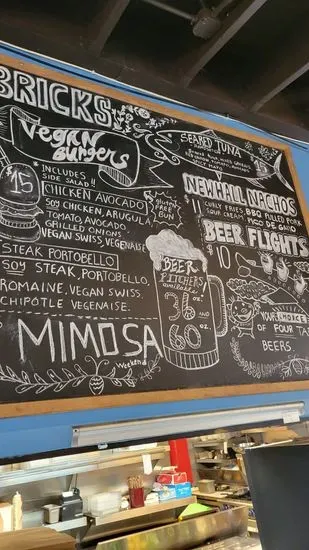 BRICKS
Vegan
Burgers
$15
*INCLUDES
SIDE SALAD!!
CHICKEN AVOCADO
SOY CHICKEN, ARUGULA
TOMATO, AVOCADO
GRILLED ONIONS
VEGAN SWISS, VEGENAISE
gluten
FREE
BUN
STEAK PORTOBELLO
SOY STEAK, PORTOBELLO,
ROMAINE, VEGAN SWISS,
CHIPOTLE VEGENAISE.
MIMOSA
Weekend
SEARED TUNA
SPICY MAYO
NEWHALL NACHOS
CURLY FRIES, BBQ PULLED PORK
SOUR CREAM, PICO DE GALLO
BEER FLIGHTS
$10
YOUR CHOICE
OF FOUR TA
BEERS
BEER
PITCHERS
available
36 oz
AND
60 oz